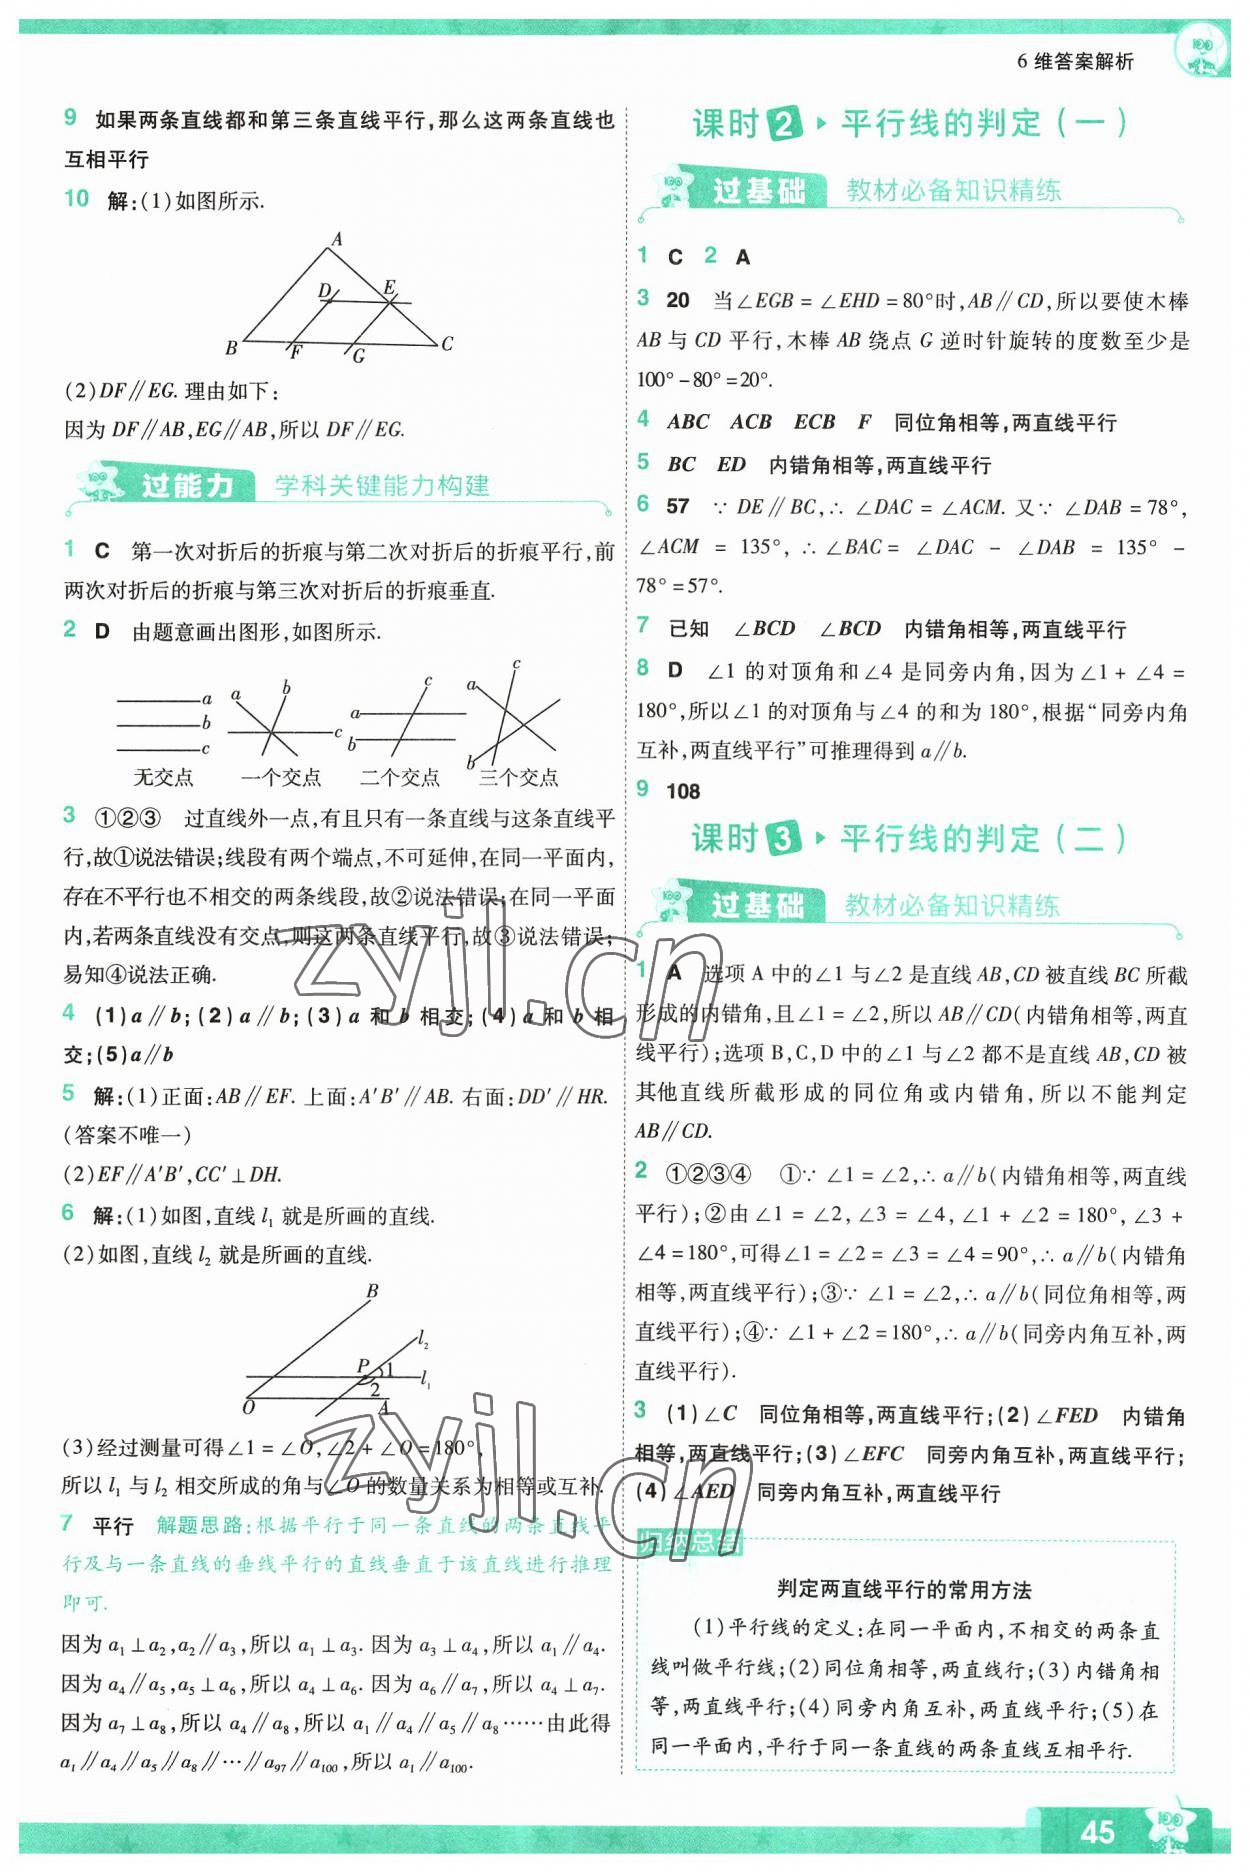 6 维答案解析
9 如果两条直线都和第三条直线平行,那么这两条直线也
互相平行
10 解:(1)如图所示.
A
D E
B F G C
(2)DF∥EG. 理由如下:
因为 DF∥AB,EG∥AB,所以 DF∥EG.
过能力 学科关键能力构建
1 C 第一次对折后的折痕与第二次对折后的折痕平行,前
两次对折后的折痕与第三次对折后的折痕垂直.
2 D 由题意画出图形,如图所示.
a b c a b c c a b c a b
无交点 一个交点 二个交点 三个交点
3 ①②③ 过直线外一点,有且只有一条直线与这条直线平
行,故①说法错误;线段有两个端点,不可延伸,在同一平面内,
存在不平行也不相交的两条线段,故②说法错误;在同一平面
内,若两条直线没有交点,则这两条直线平行,故③说法错误;
易知④说法正确.
4 (1)a∥b;(2)a∥b;(3)a 和 b 相交;(4)a 和 b 相
交;(5)a∥b
5 解:(1)正面:AB∥EF. 上面:A′B′∥AB. 右面:DD′∥HR.
(答案不唯一)
(2)EF∥A′B′,CC′⊥DH.
6 解:(1)如图,直线 l₁ 就是所画的直线.
(2)如图,直线 l₂ 就是所画的直线.
B
l₂
P 1
l₁
2
O A
(3)经过测量可得∠1=∠O,∠2+∠O=180°,
所以 l₁ 与 l₂ 相交所成的角与∠O 的数量关系为相等或互补.
7 平行 解题思路:根据平行于同一条直线的两条直线平
行及与一条直线的垂线平行的直线垂直于该直线进行推理
即可.
因为 a₁⊥a₂,a₂∥a₃,所以 a₁⊥a₃. 因为 a₃⊥a₄,所以 a₁∥a₄.
因为 a₄∥a₅,a₅⊥a₆,所以 a₄⊥a₆. 因为 a₆∥a₇,所以 a₄⊥a₇.
因为 a₇⊥a₈,所以 a₄∥a₈,所以 a₁∥a₄∥a₅∥a₈……由此得
a₁∥a₄∥a₅∥a₈∥…∥a₉₇∥a₁₀₀,所以 a₁∥a₁₀₀.
课时 2 平行线的判定(一)
过基础 教材必备知识精练
1 C 2 A
3 20 当∠EGB=∠EHD=80°时,AB∥CD,所以要使木棒
AB 与 CD 平行,木棒 AB 绕点 G 逆时针旋转的度数至少是
100°-80°=20°.
4 ABC ACB ECB F 同位角相等,两直线平行
5 BC ED 内错角相等,两直线平行
6 57 ∵ DE∥BC,∴ ∠DAC=∠ACM. 又∵ ∠DAB=78°,
∠ACM = 135°,∴ ∠BAC = ∠DAC - ∠DAB = 135° -
78°=57°.
7 已知 ∠BCD ∠BCD 内错角相等,两直线平行
8 D ∠1 的对顶角和∠4 是同旁内角,因为∠1+∠4=
180°,所以∠1 的对顶角与∠4 的和为 180°,根据“同旁内角
互补,两直线平行”可推理得到 a∥b.
9 108
课时 3 平行线的判定(二)
过基础 教材必备知识精练
1 A 选项 A 中的∠1 与∠2 是直线 AB,CD 被直线 BC 所截
形成的内错角,且∠1=∠2,所以 AB∥CD(内错角相等,两直
线平行);选项 B,C,D 中的∠1 与∠2 都不是直线 AB,CD 被
其他直线所截形成的同位角或内错角,所以不能判定
AB∥CD.
2 ①②③④ ①∵ ∠1=∠2,∴ a∥b(内错角相等,两直线
平行);②由∠1=∠2,∠3=∠4,∠1+∠2=180°,∠3+
∠4=180°,可得∠1=∠2=∠3=∠4=90°,∴ a∥b(内错角
相等,两直线平行);③∵ ∠1=∠2,∴ a∥b(同位角相等,两
直线平行);④∵ ∠1+∠2=180°,∴ a∥b(同旁内角互补,两
直线平行).
3 (1)∠C 同位角相等,两直线平行;(2)∠FED 内错角
相等,两直线平行;(3)∠EFC 同旁内角互补,两直线平行;
(4)∠AED 同旁内角互补,两直线平行
归纳总结
判定两直线平行的常用方法
(1)平行线的定义:在同一平面内,不相交的两条直
线叫做平行线;(2)同位角相等,两直线行;(3)内错角相
等,两直线平行;(4)同旁内角互补,两直线平行;(5)在
同一平面内,平行于同一条直线的两条直线互相平行.
zyjl.cn
zyjl.cn
45